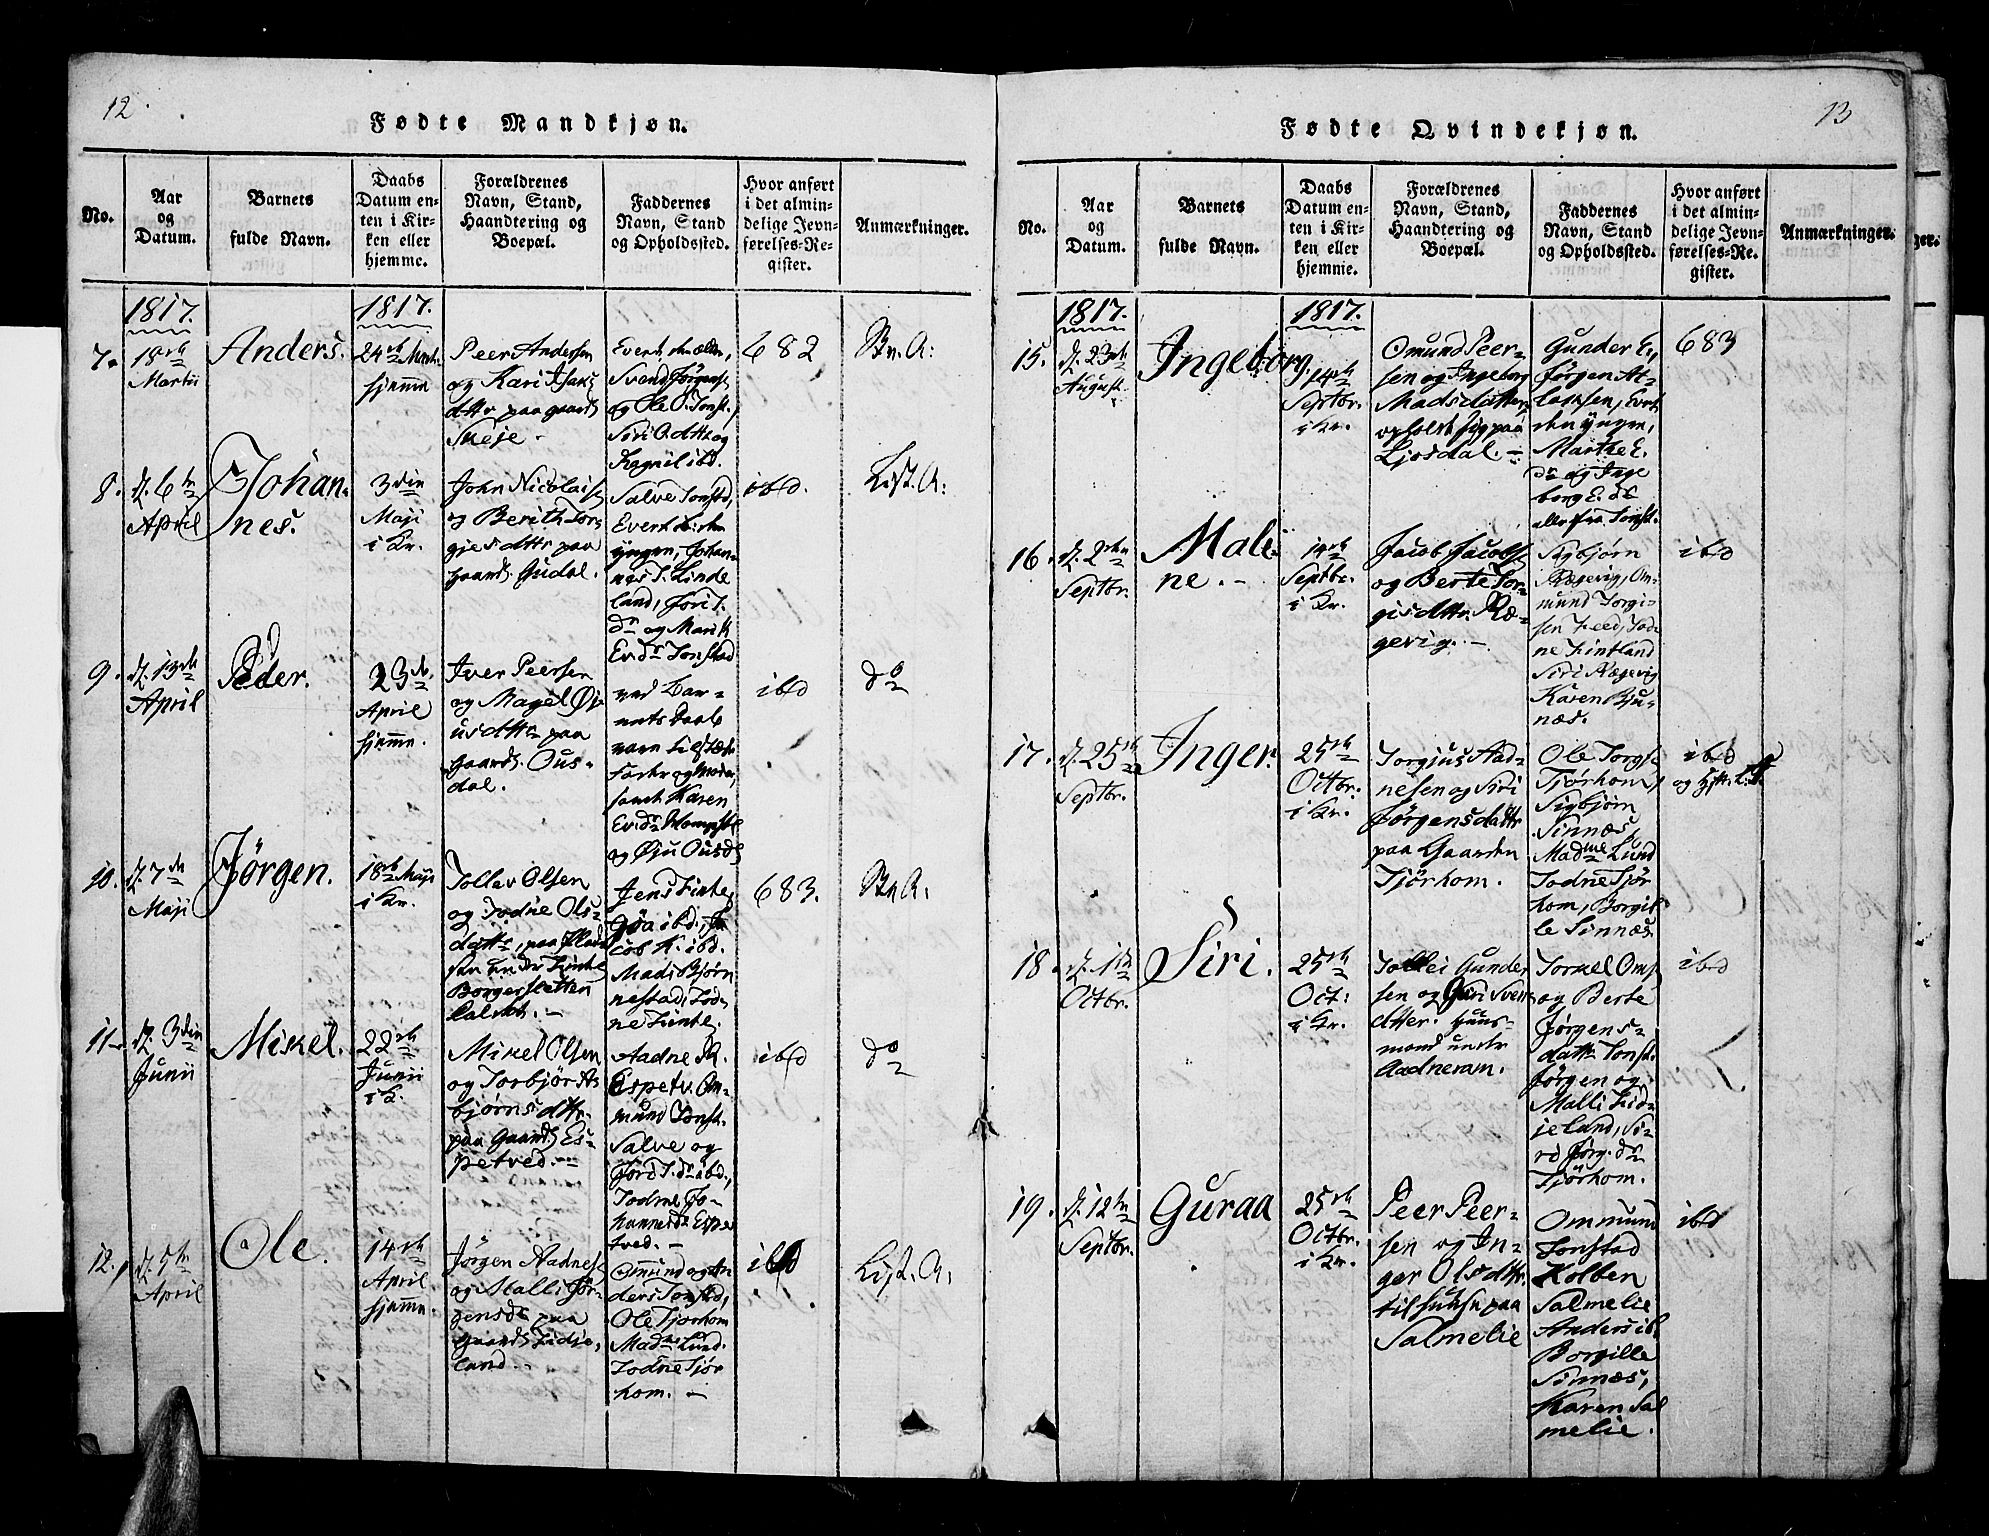 12.
Fødte Mandkjøn.
No.
Aar
og
Datum.
Barnets
fulde Navn.
Daabs
Datum en-
ten i Kir-
ken eller
hjemme.
Forældrenes
Navn, Stand,
Haandtering og
Boepæl.
Faddernes
Navn, Stand
og Opholdssted.
Hvor anført
i det almin-
delige Jevn-
førelses-Re-
gister.
Anmærkninger.
1817.
1817.
7.
18de
Martii
Anders.
24de Martii
hjemme
Peer Andersen
og Kari Isaks
dttr paa gaard
Skeje.
Evert den ældre,
Svend Jørgens
og Ole O. Tonst.,
Siri O.dttr og
Ragnil ibd.
682
Bn. A:
8.
d. 6te
April
Johan-
nes.
3die
Maji
i Kr.
John Nicolais
og Berith Tor-
gjesdttr paa
gaard. Gudal.
Salve Tonstad,
Evert
yngre, Johan-
nes T. Linde
land, Jori T.
dr og Mari
Ev.dr Tonstad
ibd.
List. A:
9.
d. 13de
April
Peder.
23de
April
hjemme.
Iver Peersen
og Magel Øi-
usdttr paa
gaard. Ous-
dal.
ved Bar-
nets Daab
vare tilstæde
og Moder,
samt Karen
Ev.dr
og Øju Ousd.
ibd
do
10.
d. 7de
Maji
Jørgen.
18de Maji
i Kr.
Tollev Olsen
og Todne Ols-
dattr, paa
under Finte
Borgersletten
kaldet.
Jens Finte,
Gøa ibd., Ja
cob K. ibd.
Madi Bjørn
nestad, Tod-
ne Finte.
683.
Bn A:
11.
d. 3die
Junii
Mikel.
22de
Junii
i K.
Mikel Olsen
og Torbjør As
bjørnsdttr.
paa Gaard. Es-
petved.
Aadne A.
Espetv. Om-
mund Tonst.
Salve og
Jori T.dr ibd.,
Todne Jo-
hannesdr Espe
tved.
ibd
do
12.
d. 5te
April
Ole.
14de
April
hjemme.
Jørgen Aadnes
og Malli Jør-
gensdr paa
Gaard. Fidje-
land.
Ommund og An
ders Tonstad,
Ole Tjørhom
Madme Lund.
Todne Tjør
hom.
ibd
List. A:
13
Fødte Qvindekjøn.
No.
Aar
og
Datum.
Barnets
fulde Navn.
Daabs
Datum en-
ten i Kir-
ken eller
hjemme.
Forældrenes
Navn, Stand,
Haandtering og
Boepæl.
Faddernes
Navn, Stand
og Opholdssted.
Hvor anført
i det almin-
delige Jevn-
førelses-Re-
gister.
Anmærkninger.
1817.
1817.
15.
d. 23de
August.
Ingeborg.
14de
Septbr.
i Kr.
Omund Peer-
sen og Ingeborg
Madsdatter,
opholdt sig paa
Ljosdal.
Gunder E.,
Jørgen At-
laksen, Evert
den yngre,
Marthe E.
dr og Inge
borg E. dr
alle fra Tonst.
683
16.
d. 2den
Septbr.
Male-
ne.
14de
Septbr.
i Kr.
Jacob Jacobs
og Berte Tor-
gisdttr. Ræ-
gevig.
Sigbjørn
Rægevig, Om-
mund Torgi-
sen Feed, Tod-
ne Fintland
Siri Rægevig
Karen Bju-
næs.
ibd
17.
d. 25de
Septbr.
Inger.
25de
Octbr.
i Kr.
Torgjus Aad-
nesen og Siri
Jørgensdattr
paa Gaarden
Tjørhom.
Ole Torgs
Tjørhom,
Sigbjørn
Sinnæs,
Madme Lund
Todne Tjør
hom, Borgil-
le Sinnæs
ibd
18.
d. 1ste
Octbr.
Siri.
25de
Oct:
i Kr.
Tollei Gunder
sen og Guri Svens
dtter. Huus-
mand under
Aadneram.
Torkel Oms
og Berte
Jørgens-
dattr Tonst.
Jørgen og
Malli Fid-
jeland, Si-
ri Jørg. dr
Tjørhom.
ibd
19.
d. 12te
Septbr.
Guraa
25de
Octbr.
i Kr.
Peer Peer-
sen og In-
ger Olsdttr.
tilhuuse paa
Salmelie
Ommund
Tonstad
Kolben
Salmelie
Anders ib.
Borgille
Sinnæs,
Karen Sal
melie.
ibd